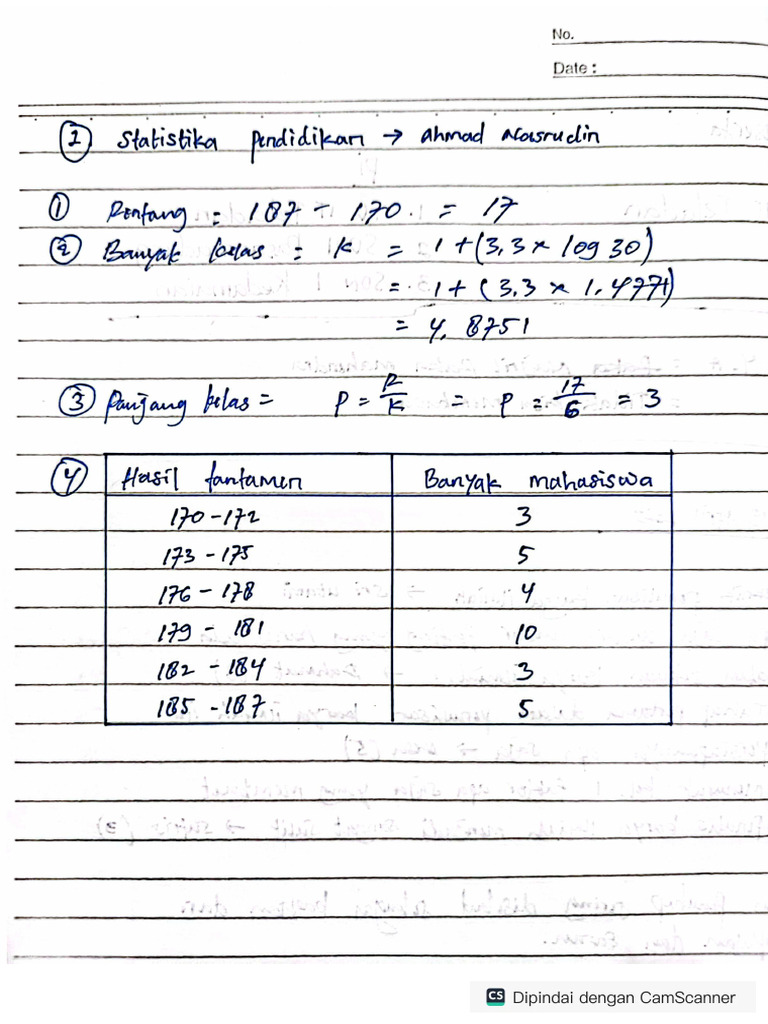 No.
Date :
② Statistika pendidikan → ahmad Nasrudin
① Rentang = 187 - 170. = 17
② Banyak kelas = K = 1 + (3,3 × log 30)
= 1 + (3,3 × 1,4771)
= 4,8751
③ Panjang kelas = P = R/K = P = 17/6 = 3
④ Hasil tantamen Banyak mahasiswa
170-172 3
173-175 5
176-178 4
179-181 10
182-184 3
185-187 5
CS Dipindai dengan CamScanner